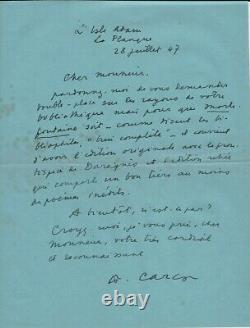 L'Isle Adam
La Planque
28 juillet 47
Cher monsieur,
pardonnez-moi de vous demander
double-place sur les rayons de votre
bibliothèque mais pour que Morte-
fontaine soit - comme disent les bi-
bliophiles, "bien complète" - il convient
d'avoir l'édition originale avec le fron-
tispice de Daragnès et l'édition
qui comporte un bon tiers au moins
de poèmes inédits.
A bientôt, n'est-ce pas?
Croyez-moi, je vous prie, cher
monsieur, votre très cordial
et reconnaissant
Carco